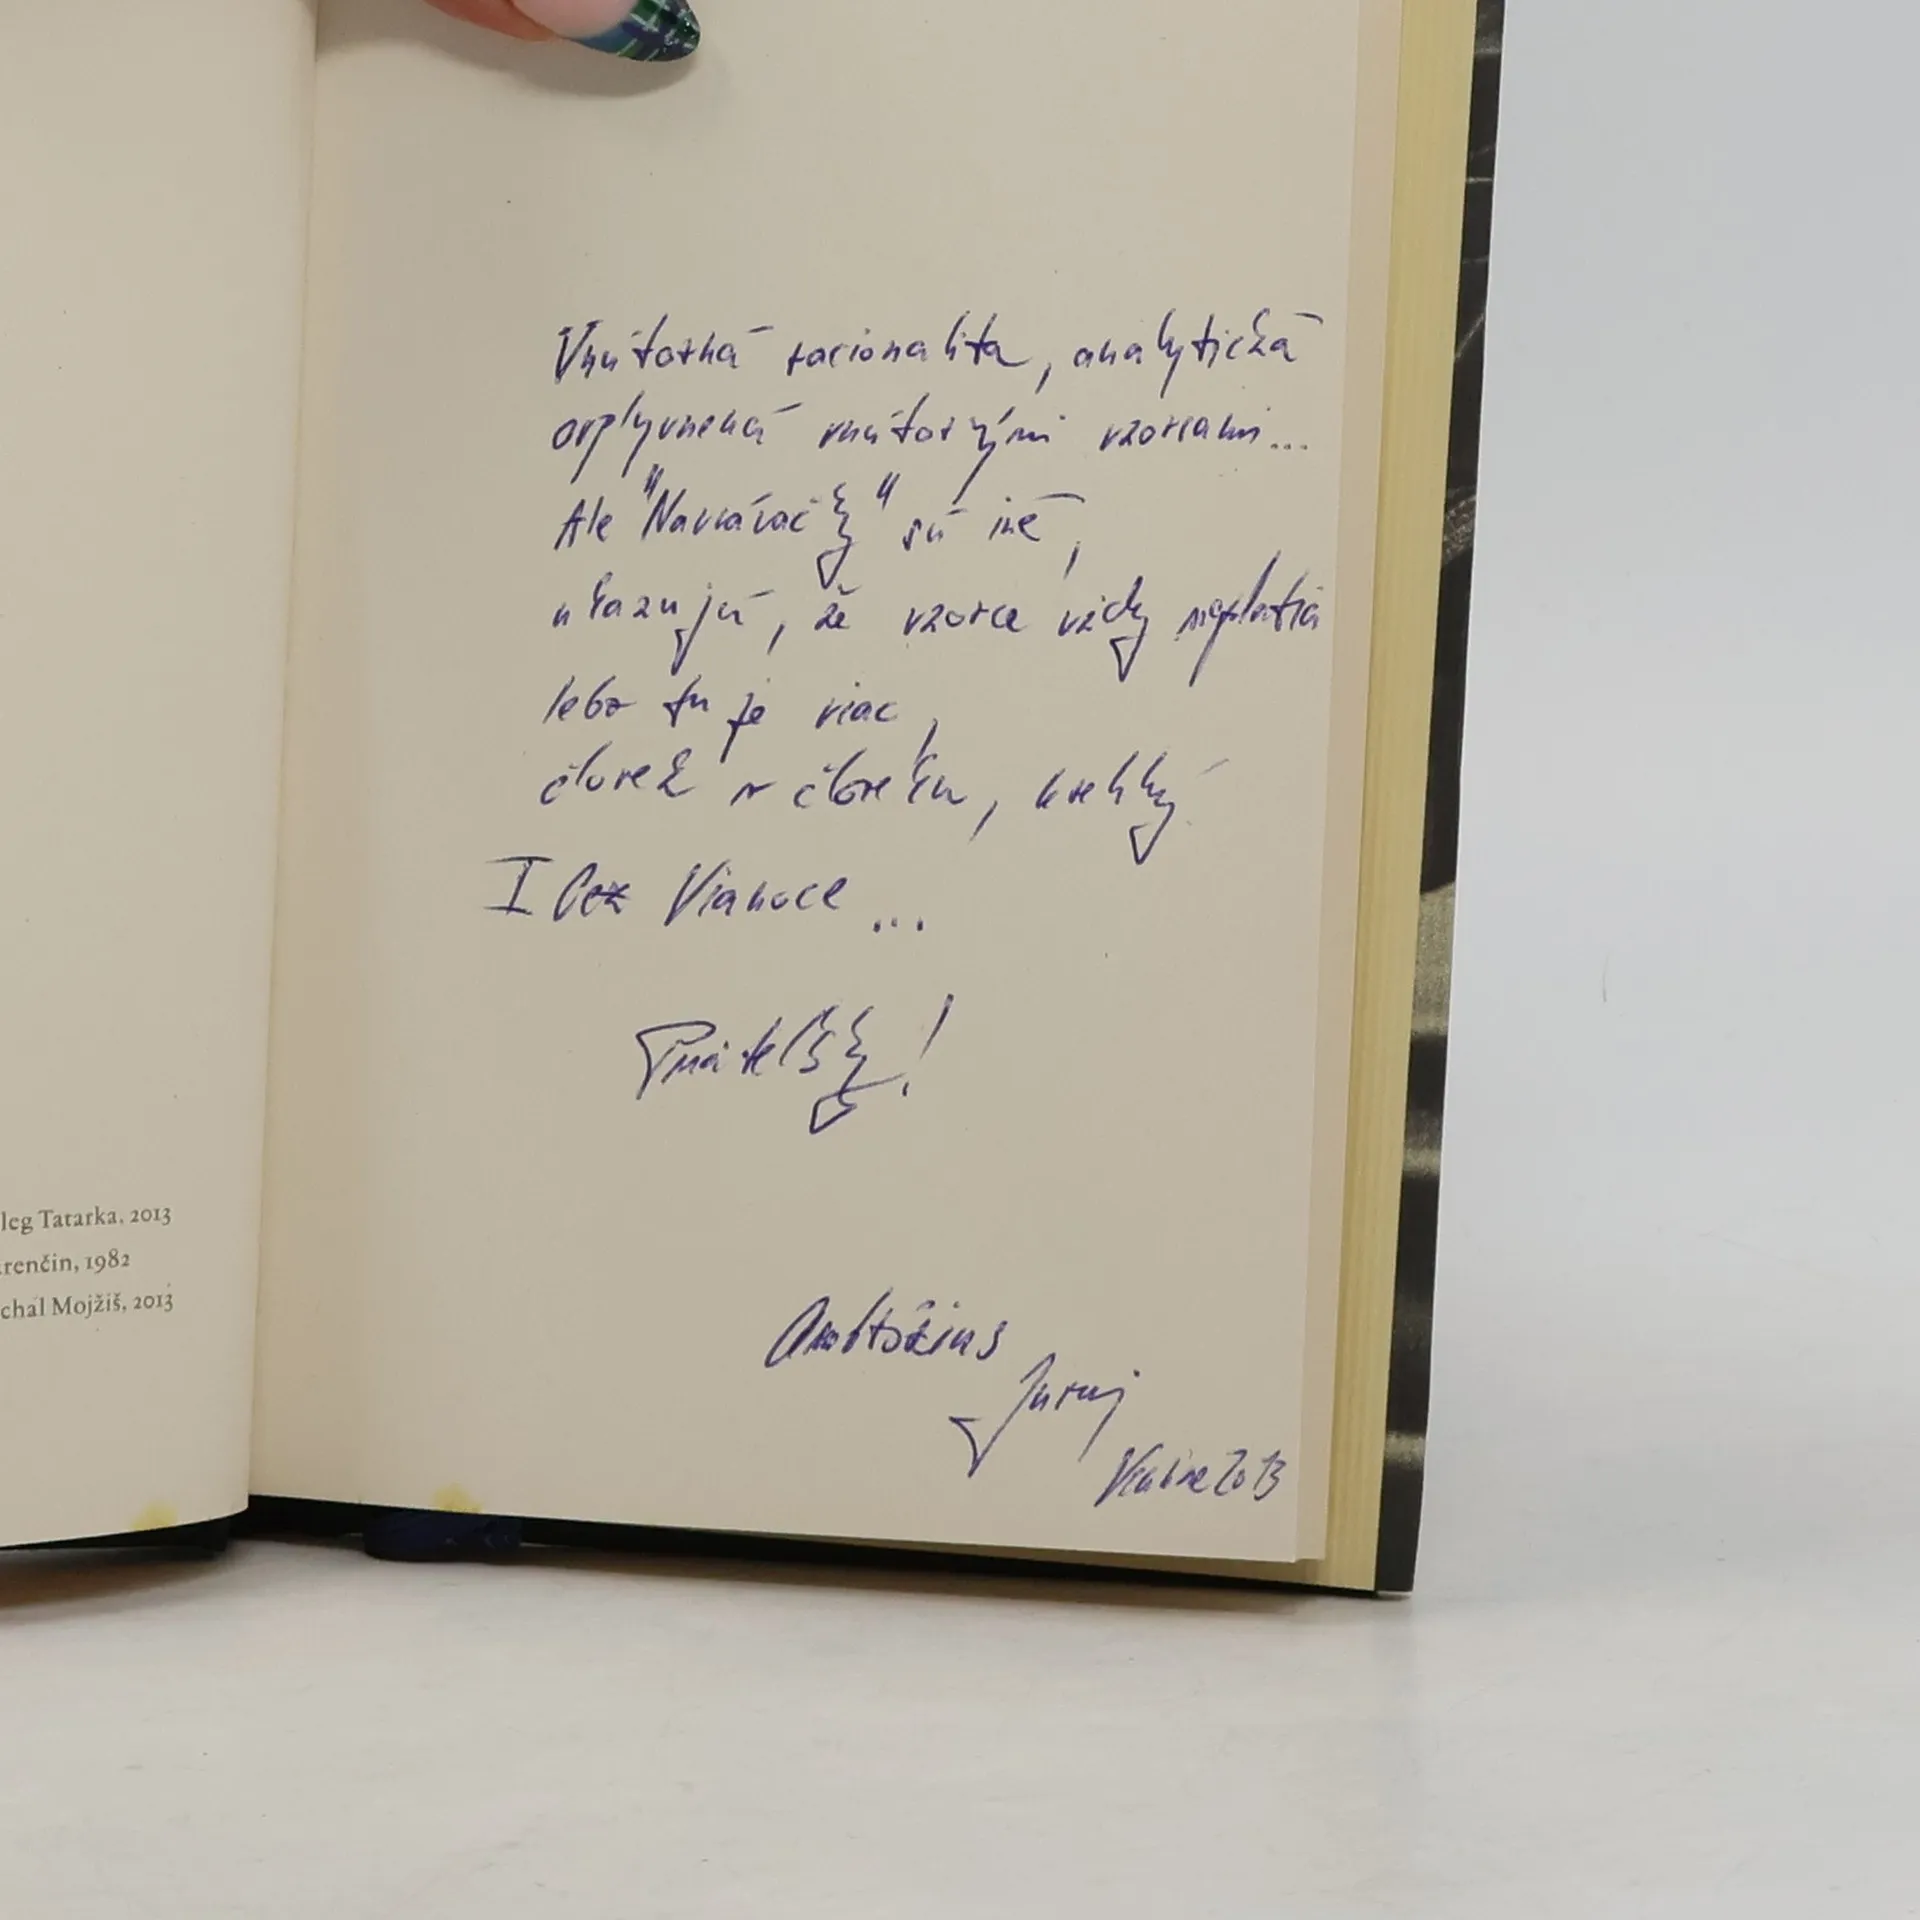 leg Tatarka, 2013
renčin, 1982
chal Mojžiš, 2013
Vnútorná racionalita, analytická
ovplyvnená vnútornými vzorcami...
Ale "Navrávačky" sú iné,
ukazujú, že vzorce vždy neplatia
lebo tu je viac,
človek v človeku, krehký
I Cez Vianoce ...
Priateľsky!
Ambróžius
Juraj
2013